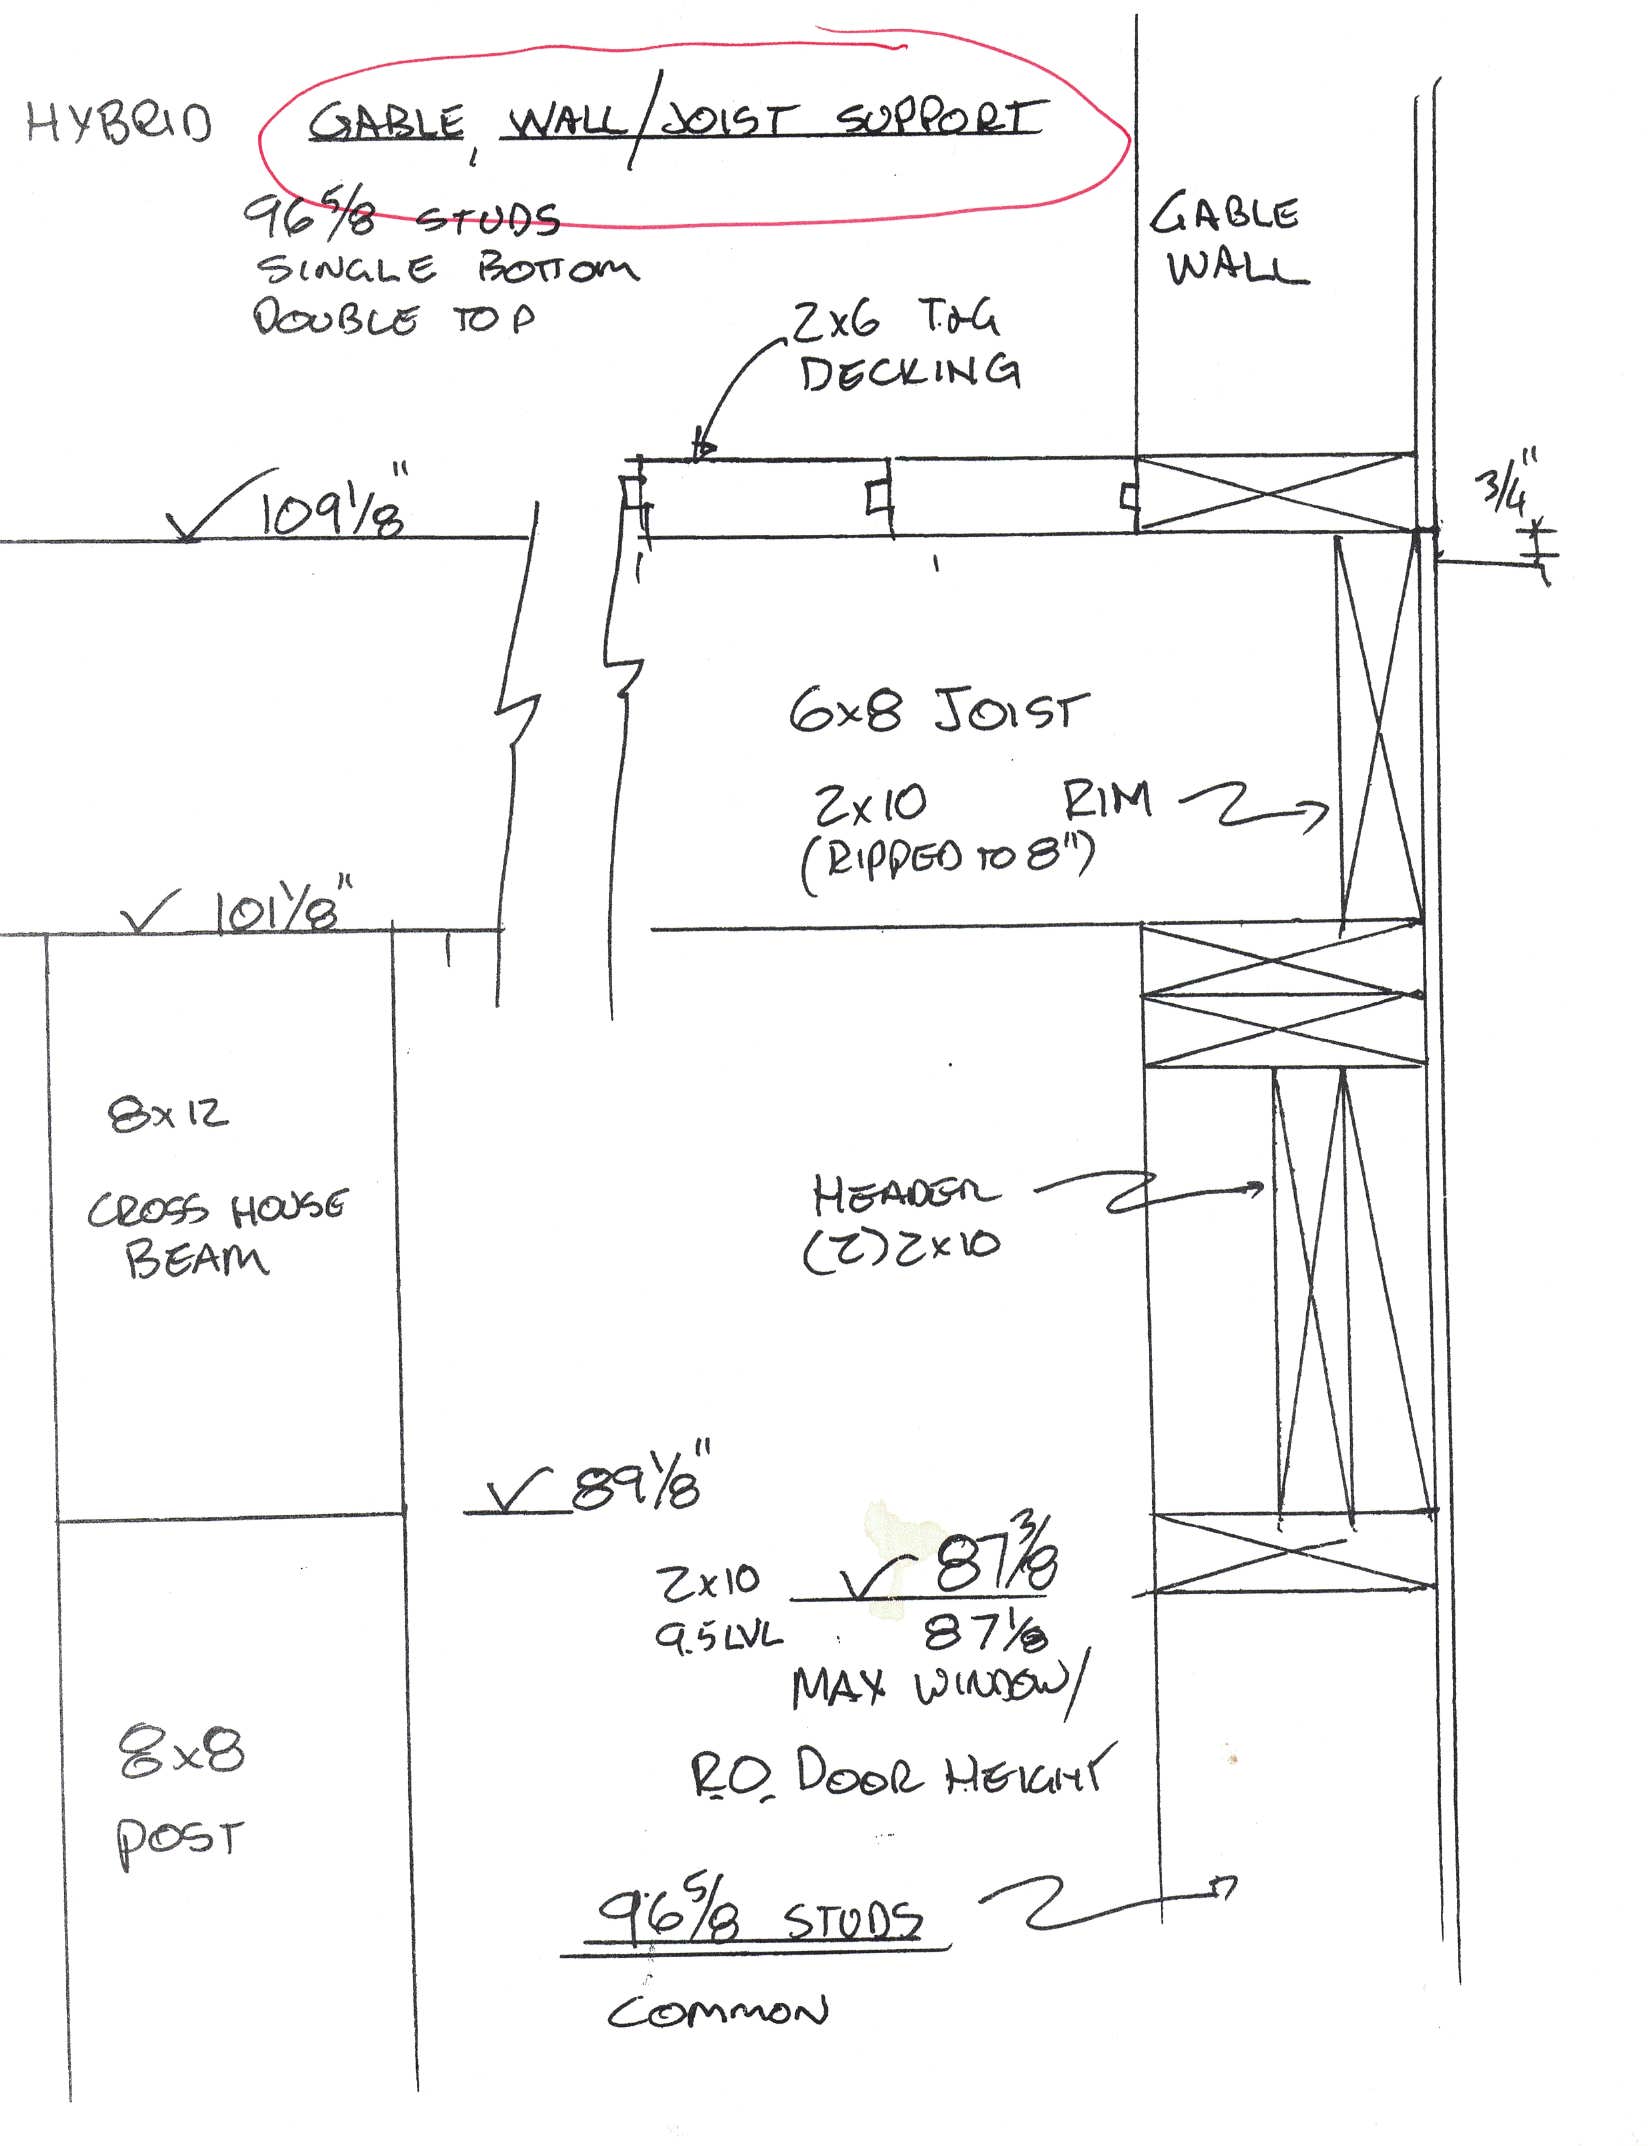 HYBRID GABLE WALL/JOIST SUPPORT
96 5/8 STUDS
SINGLE BOTTOM
DOUBLE TOP
GABLE
WALL
2x6 T&G
DECKING
109 1/8"
3/4"
6x8 JOIST
2x10 RIM
(RIPPED TO 8")
101 1/8"
8x12
CROSS HOUSE
BEAM
HEADER
(2) 2x10
89 1/8"
2x10 87 3/8
9.5 LVL 87 1/8
MAX WINDOW/
R.O. DOOR HEIGHT
8x8
POST
96 5/8 STUDS
COMMON